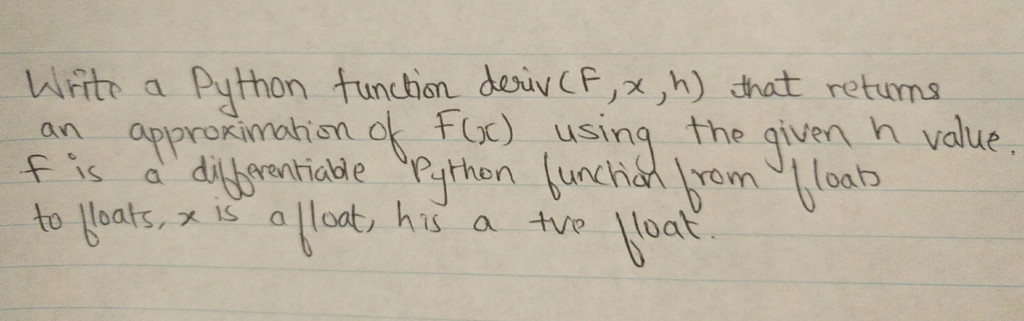 Write a Python function deriv(F, x, h) that returns
an approximation of F(x) using the given h value.
f is a differentiable Python function from floats
to floats, x is a float, h is a +ve float.